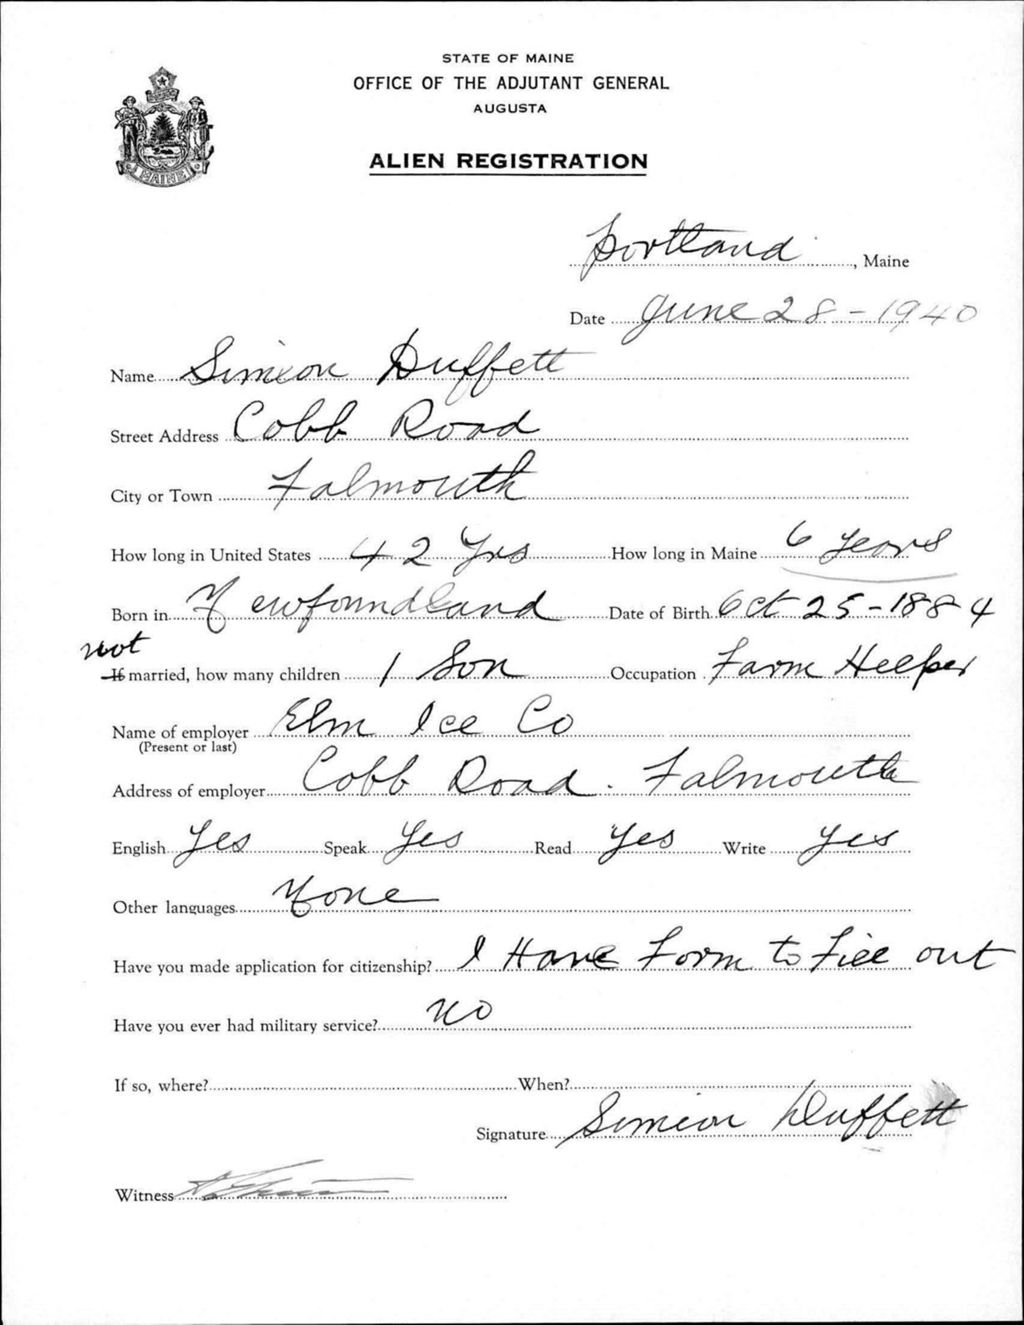 STATE OF MAINE
OFFICE OF THE ADJUTANT GENERAL
AUGUSTA
ALIEN REGISTRATION
MAINE
Portland, Maine
Date June 28-1940
Name Simeon Duffett
Street Address Cobb Road
City or Town Falmouth
How long in United States 42 Yrs How long in Maine 6 years
Born in Newfoundland Date of Birth Oct 25-1884
not
If married, how many children 1 Son Occupation Farm Helper
Name of employer Elm Ice Co
(Present or last)
Address of employer Cobb Road. Falmouth
English Yes Speak Yes Read Yes Write Yes
Other languages None
Have you made application for citizenship? I Have Form to Fill out
Have you ever had military service? No
If so, where? When?
Signature Simeon Duffett
Witness